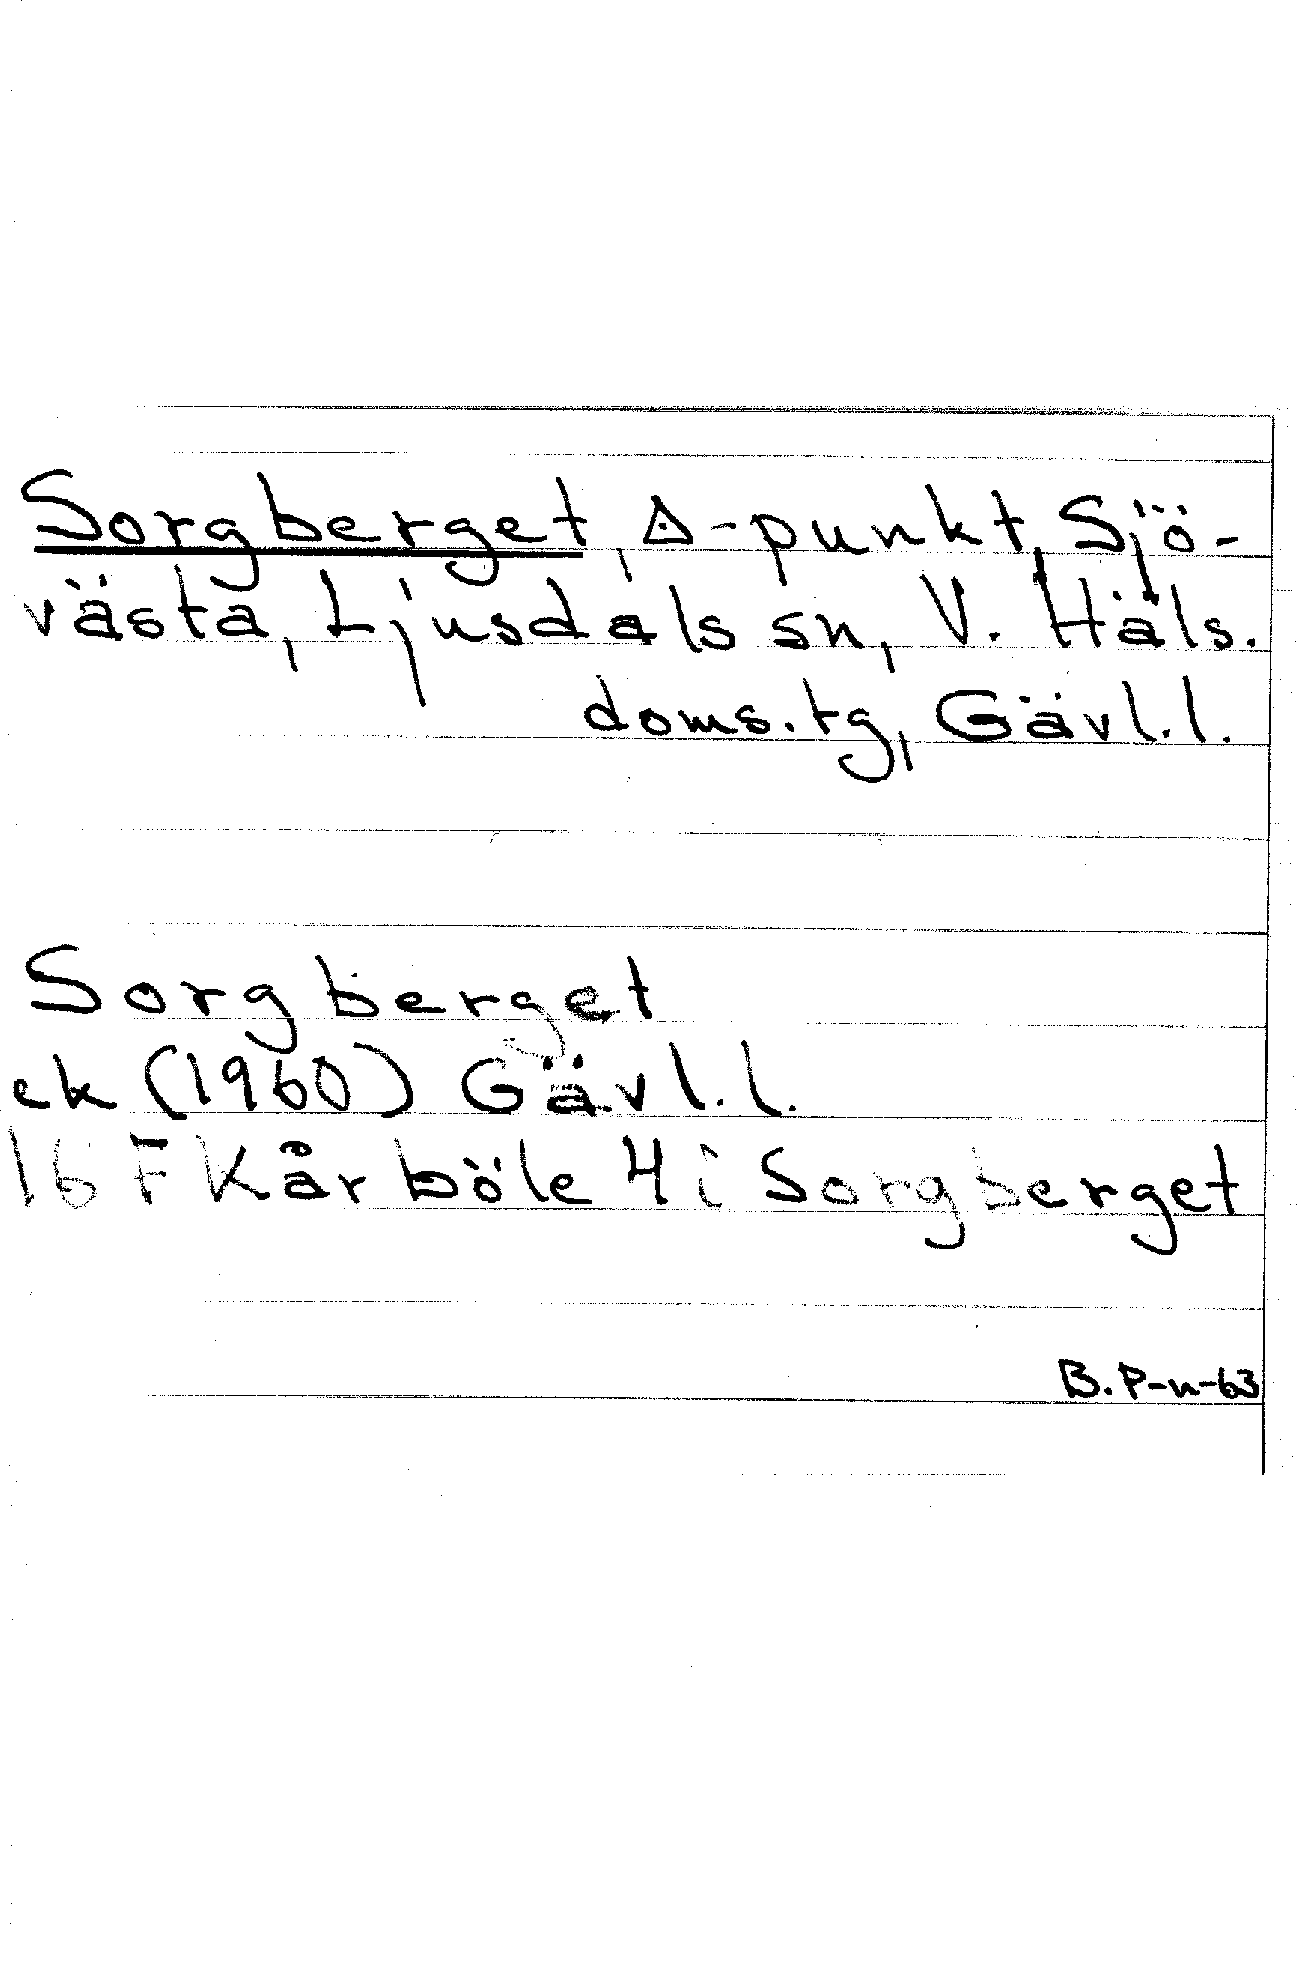 Sorgberget, △-punkt, Sjö-
västa, Ljusdals sn, V. Häls.
doms. tg, Gävl. l.
Sorgberget
ek (1960) Gävl. l.
16 F Kårböle 4 i Sorgberget
B. P-n-63